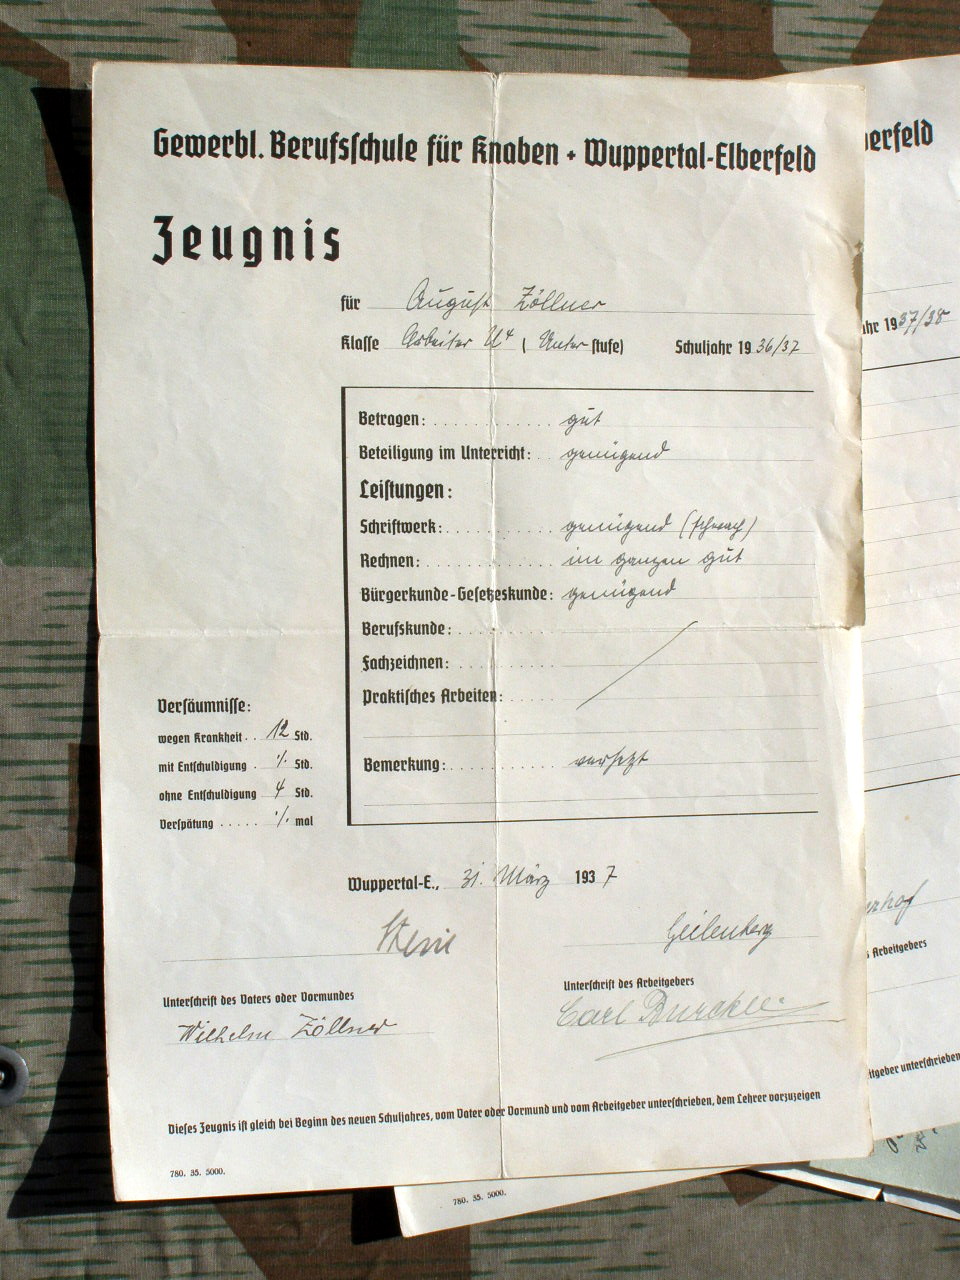 Gewerbl. Berufsschule für Knaben + Wuppertal-Elberfeld
Zeugnis
für August Zöllner
Klasse Arbeiter U⁴ (Unter stufe) Schuljahr 19 36/37
Betragen: gut
Beteiligung im Unterricht: genügend
Leistungen:
Schriftwerk: genügend (schwach)
Rechnen: im ganzen gut
Bürgerkunde-Gesetzeskunde: genügend
Berufskunde:
Fachzeichnen:
Praktisches Arbeiten:
Bemerkung: versetzt
Versäumnisse:
wegen Krankheit . . 12 Std.
mit Entschuldigung . ·/. Std.
ohne Entschuldigung 4 Std.
Verspätung . . . . . ·/. mal
Wuppertal-E., 31. März 193 7
Geilenberg
Unterschrift des Vaters oder Vormundes
Wilhelm Zöllner
Unterschrift des Arbeitgebers
Carl
Dieses Zeugnis ist gleich bei Beginn des neuen Schuljahres, vom Vater oder Vormund und vom Arbeitgeber unterschrieben, dem Lehrer vorzuzeigen
780. 35. 5000.
780. 35. 5000.
berfeld
hr 1937/38
Arbeitgebers
itgeber unterschrieben